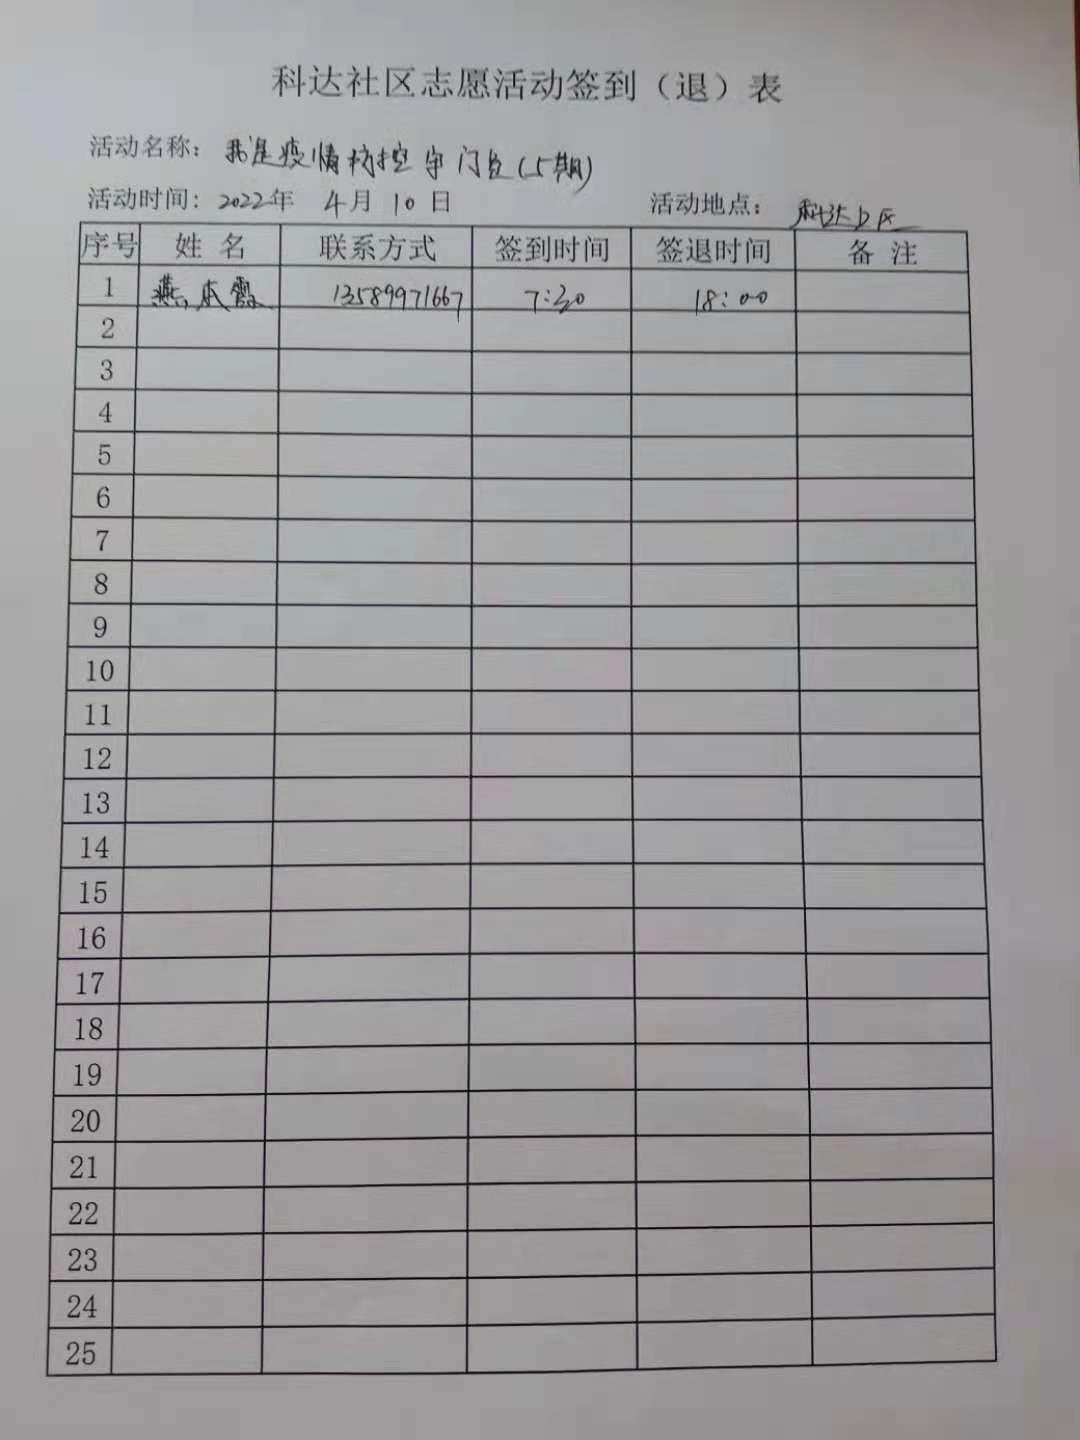 科达社区志愿活动签到（退）表
活动名称：我是疫情防控守门员(5期)
活动时间：2022年 4月 10日 活动地点：科达D区
序号 姓名 联系方式 签到时间 签退时间 备注
1 燕本霞 13589971667 7:30 18:00
2
3
4
5
6
7
8
9
10
11
12
13
14
15
16
17
18
19
20
21
22
23
24
25